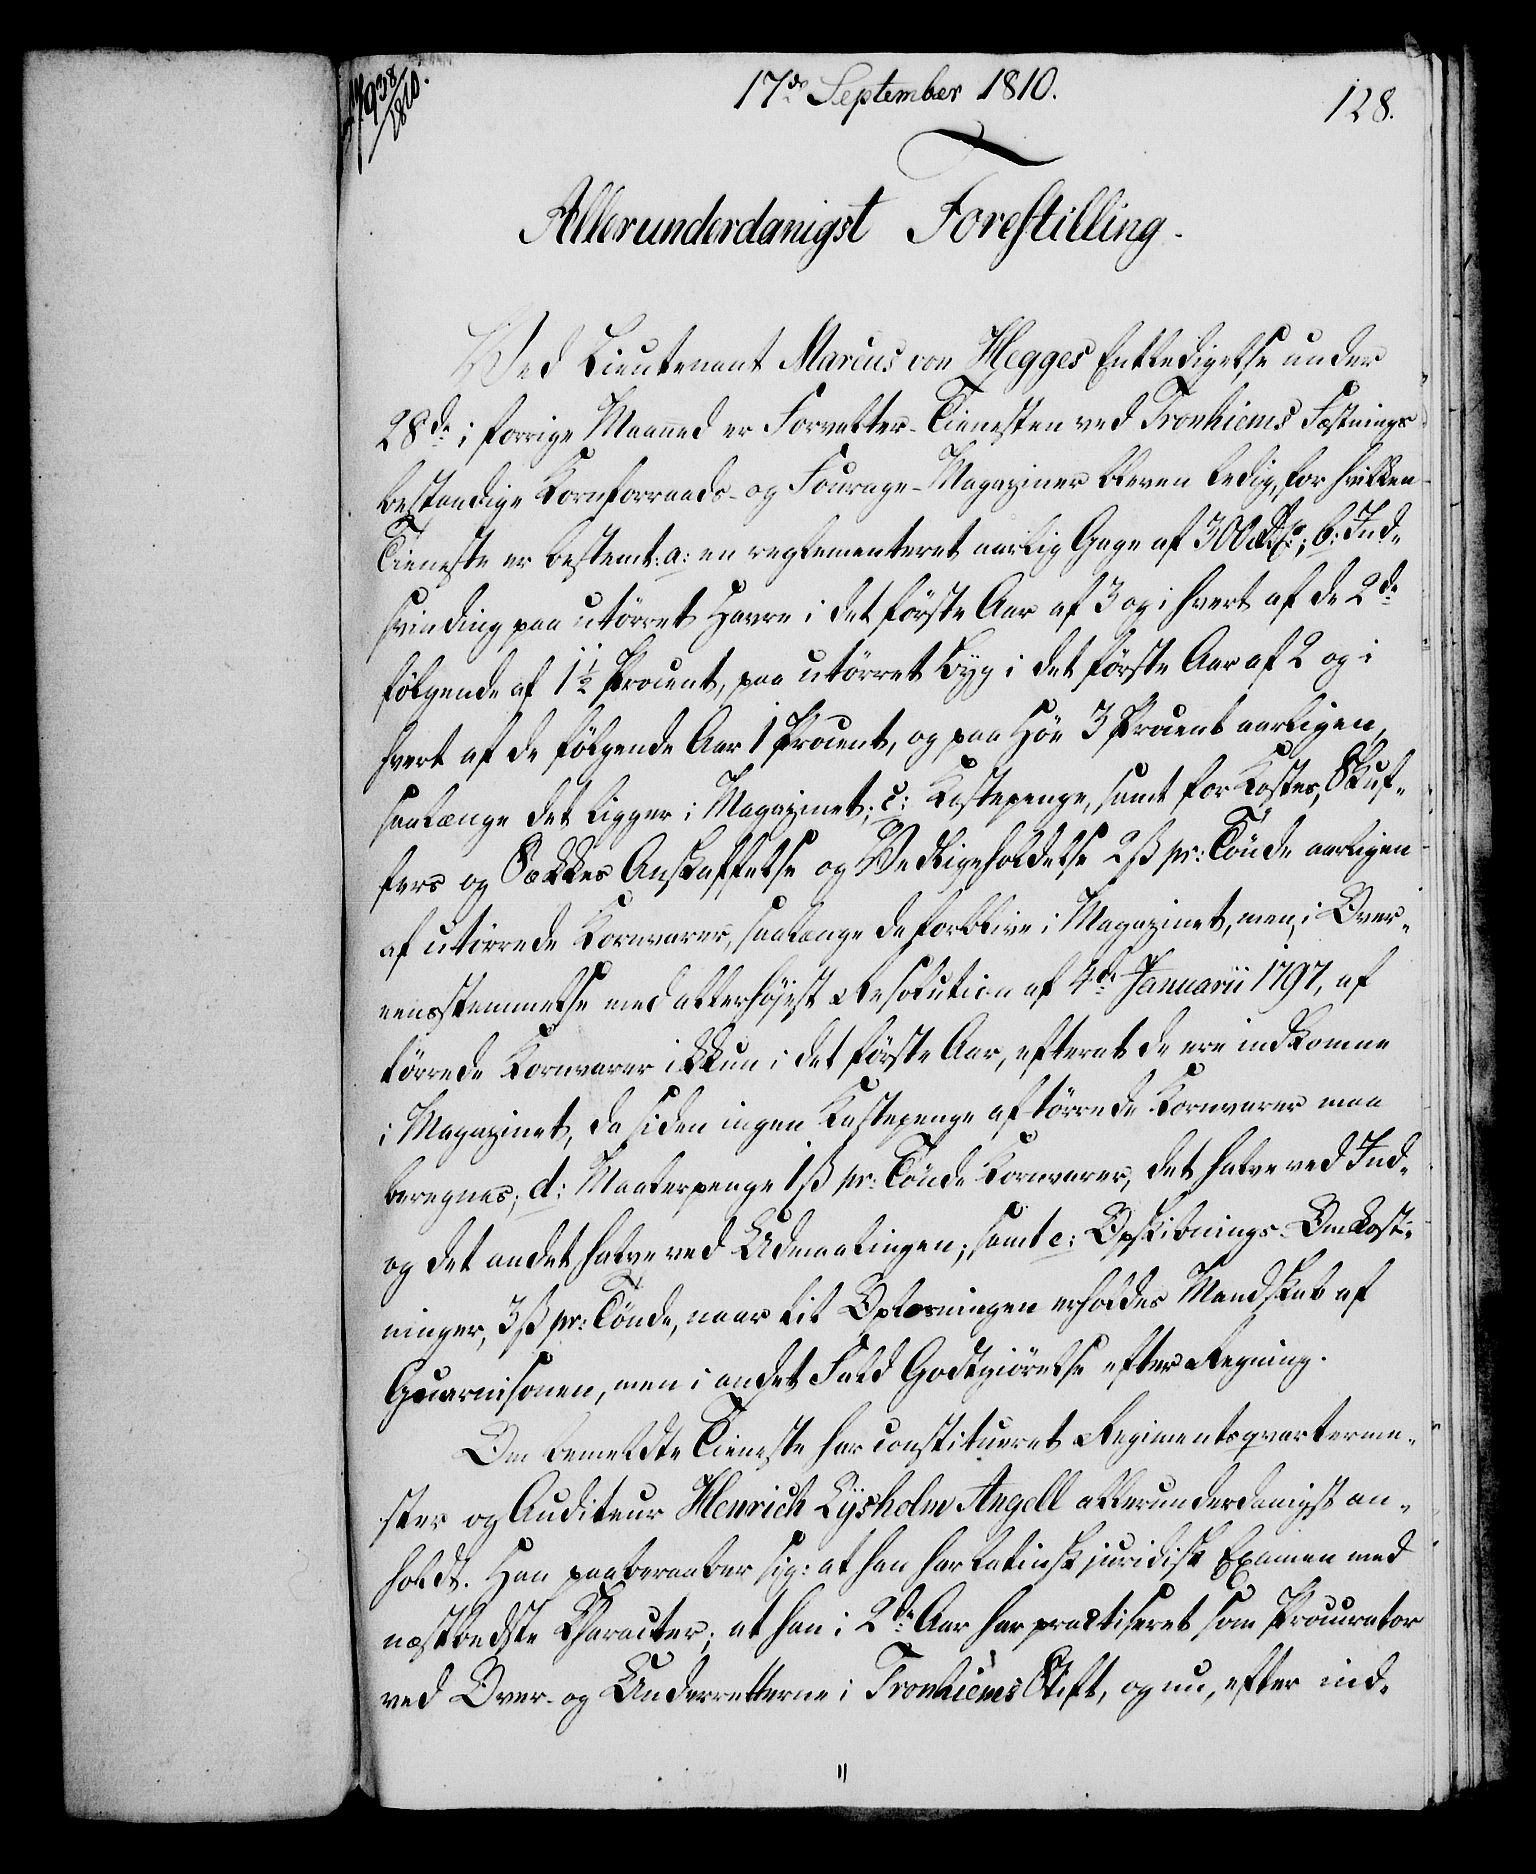 938/1810.
17de September 1810.
128.
Allerunderdanigst Forestilling.
Ved Lieutenant Marcus von Hegges Entledigelse under
28de i forrige Maaned er Forvalter-Tienesten ved Tronhiems Fæstnings
bestandige Kornforraads- og Fourage-Magaziner bleven ledig, for hvilken
Tieneste er bestemt: a: en reglementeret aarlig Gage af 300 Rdlr; b: Ind-
svinding paa utörret Havre i det förste Aar af 3 og i hvert af de 2de
fölgende af 1½ Procent, paa utörret Byg i det förste Aar af 2 og i
hvert af de fölgende Aar 1 Procent, og paa Höe 3 Procent aarligen,
saalænge det ligger i Magazinet; c: Kastepenge, samt for Kostes, Skuf-
fers og Sækkes Anskaffelse og Vedligeholdelse 2ß pr: Tönde aarligen
af utörrede Kornvarer, saalænge de forblive i Magazinet, men, i Over-
eensstemmelse med allerhöjest Resolution af 4de Januarii 1797, af
törrede Kornvarer ikkun i det förste Aar, efterat de ere indkomne
i Magazinet, da siden ingen Kastepenge af törrede Kornvarer maa
beregnes; d: Maalerpenge 1ß pr: Tönde Kornvarer, det halve ved Ind-
og det andet halve ved Udmaalingen; samt e: Opskibnings-Omkost-
ninger, 3ß pr: Tönde, naar til Oplosningen erholdes Mandskab af
Guarnisonen, men i andet Fald Godtgiörelse efter Regning.
Om bemeldte Tieneste har constitueret Regimentsqvarterme-
ster og Auditeur Henrich Lysholm Angell allerunderdanigst an-
holdt. Han paaberaaber sig: at han har latinsk juridisk Examen med
næstbedste Character; at han i 2de Aar har practiseret som Procurator
ved Over- og Underretterne i Tronhiems Stift, og nu, efter ind-